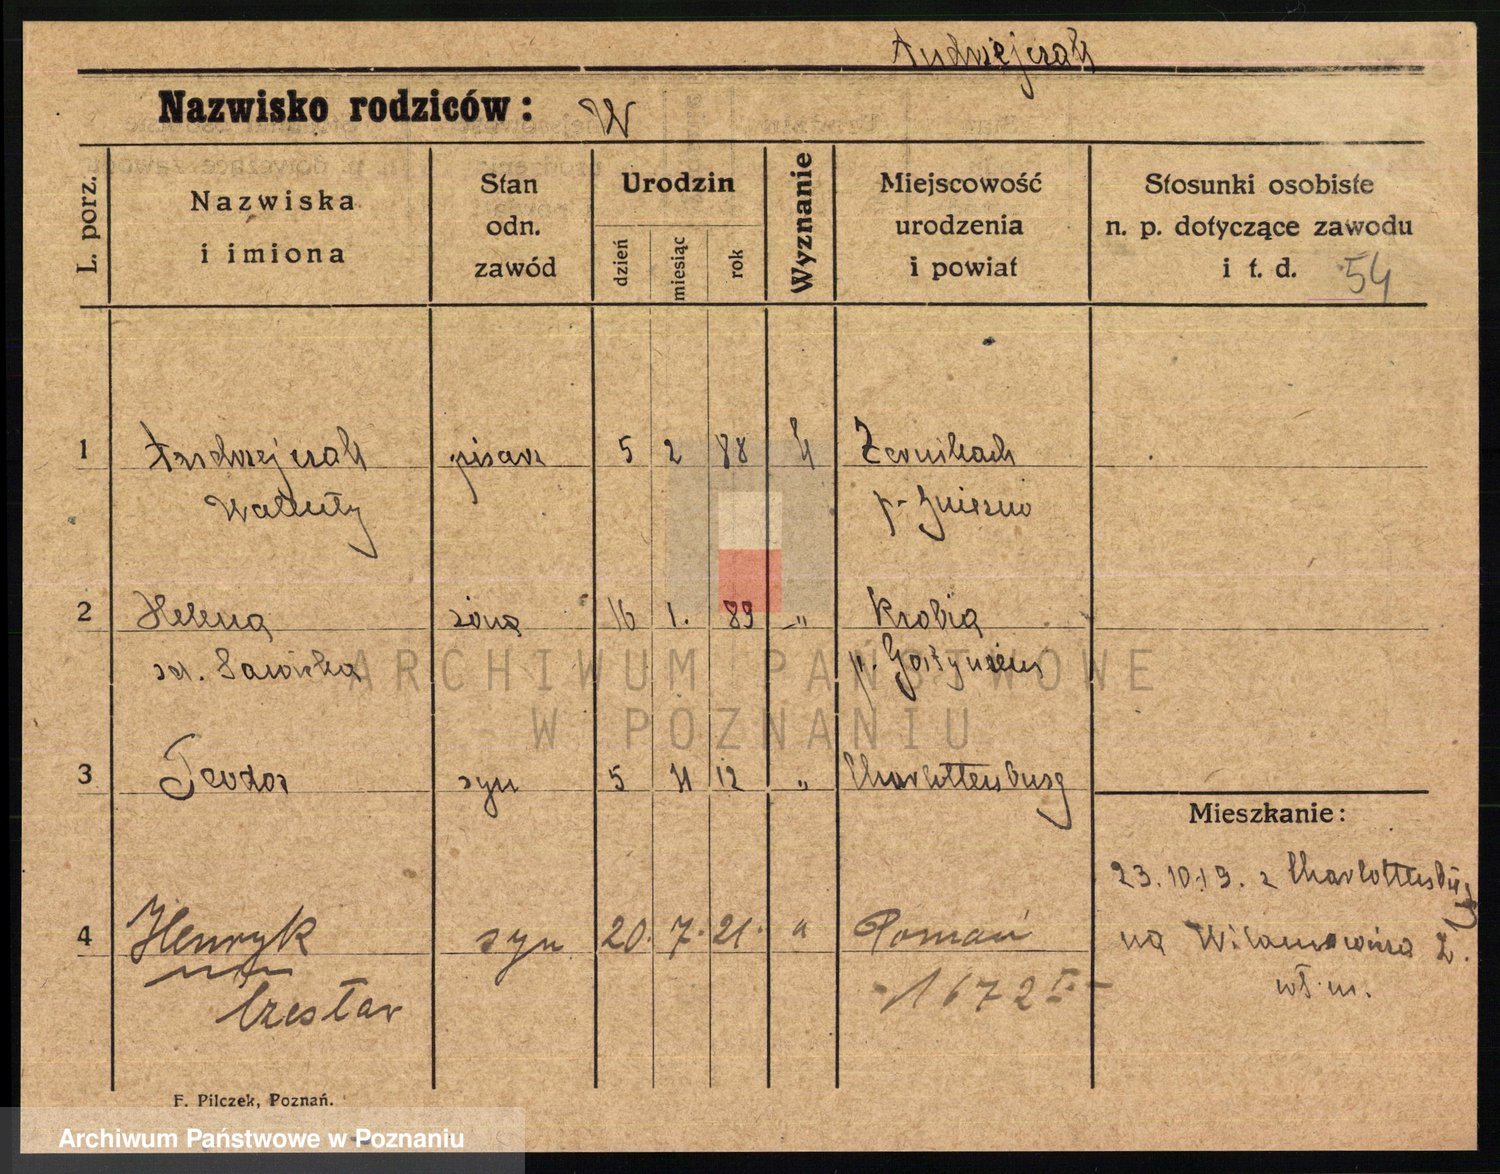 Andrzejczak
Nazwisko rodziców: W
L. porz.
Nazwiska
i imiona
Stan
odn.
zawód
Urodzin
dzień
miesiąc
rok
Wyznanie
Miejscowość
urodzenia
i powiat
Stosunki osobiste
n. p. dotyczące zawodu
i t. d. 54
1 Andrzejczak pisarz 5 2 88 Żernikach
Walenty p. Gniezno
2 Helena żona 16 1. 89 " Krobia
zd. Sawicka p. Gostyniem
3 Teodor syn 5 11 12 " Charlottenburg
Mieszkanie:
23.10.19. z Charlottenburg
4 Henryk syn 20. 7. 21. " Poznań
na 2.
Czesław - 1672 I -
wł. m.
F. Pilczek, Poznań.
ARCHIWUM PAŃSTWOWE
W POZNANIU
Archiwum Państwowe w Poznaniu